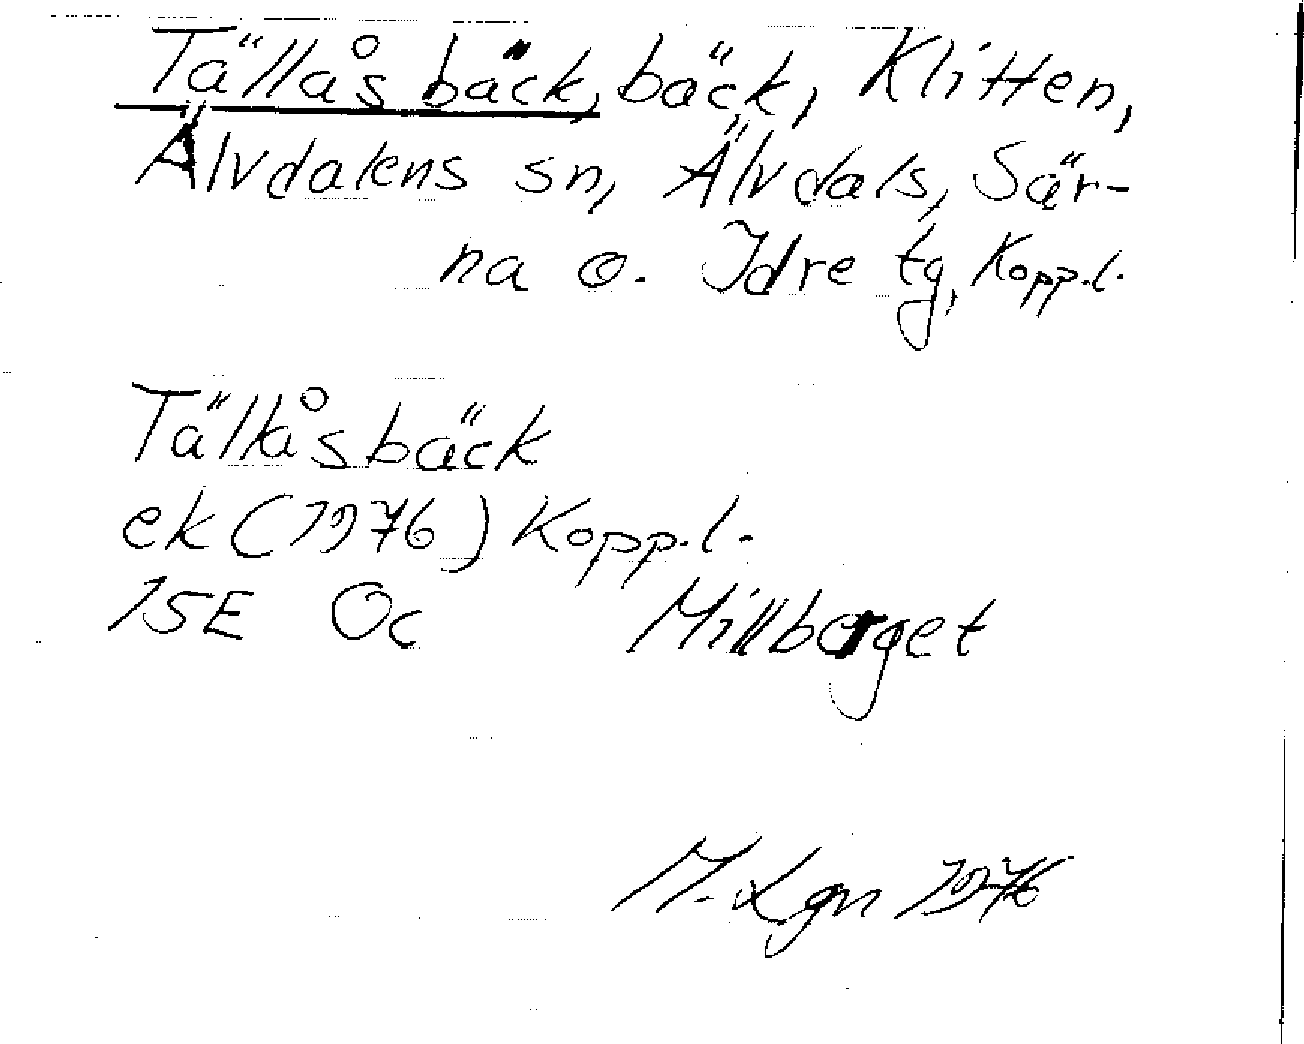 Tällåsbäck, bäck, Klitten,
Älvdalens sn, Älvdals, Sär-
na o. Idre tg, Kopp.l.
Tällåsbäck
ek (1976) Kopp.l.
15E Oc Millborget
M. Lgn 1976